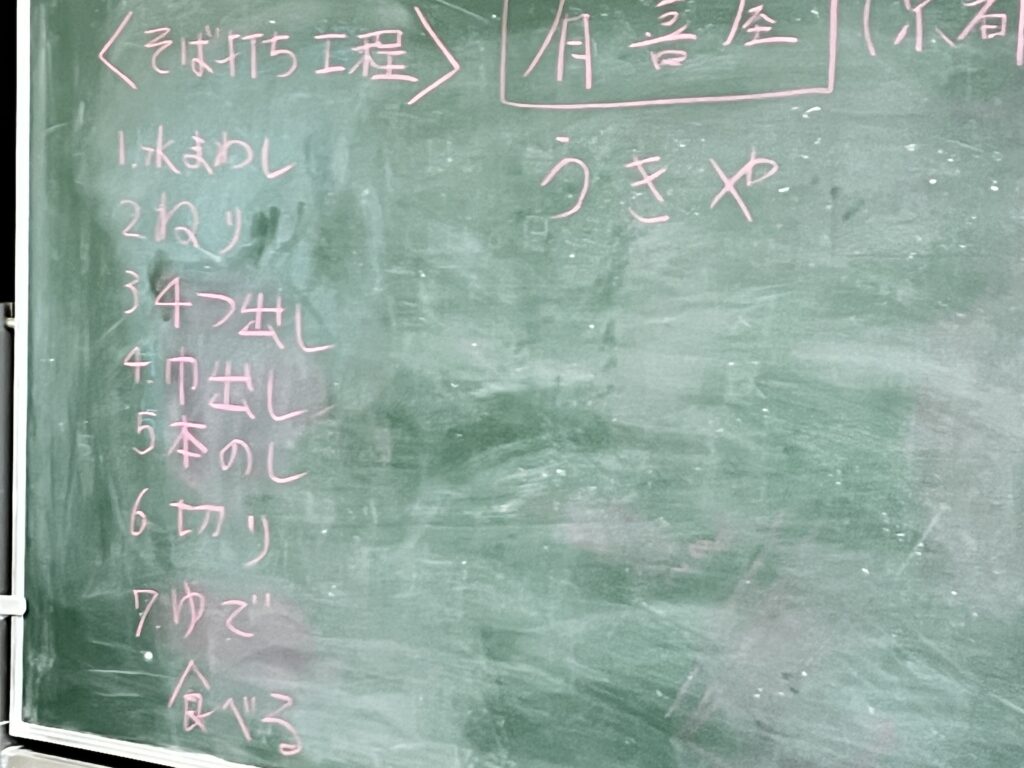 〈そば打ち工程〉
1.水まわし
2ねり
3 4つ出し
4.巾出し
5本のし
6切り
7.ゆで
食べる
有喜屋(京都
うきや